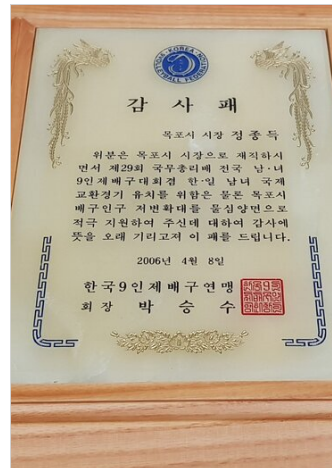 KOREA
감 사 패
목포시 시장 정종득
위분은 목포시 시장으로 재직하시
면서 제29회 국무총리배 전국 남·녀
9인제배구대회겸 한·일 남녀 국제
교환경기 유치를 위함은 물론 목포시
배구인구 저변확대를 물심양면으로
적극 지원하여 주신데 대하여 감사에
뜻을 오래 기리고저 이 패를 드립니다.
2006년 4월 8일
한국9인제배구연맹
회장 박 승 수